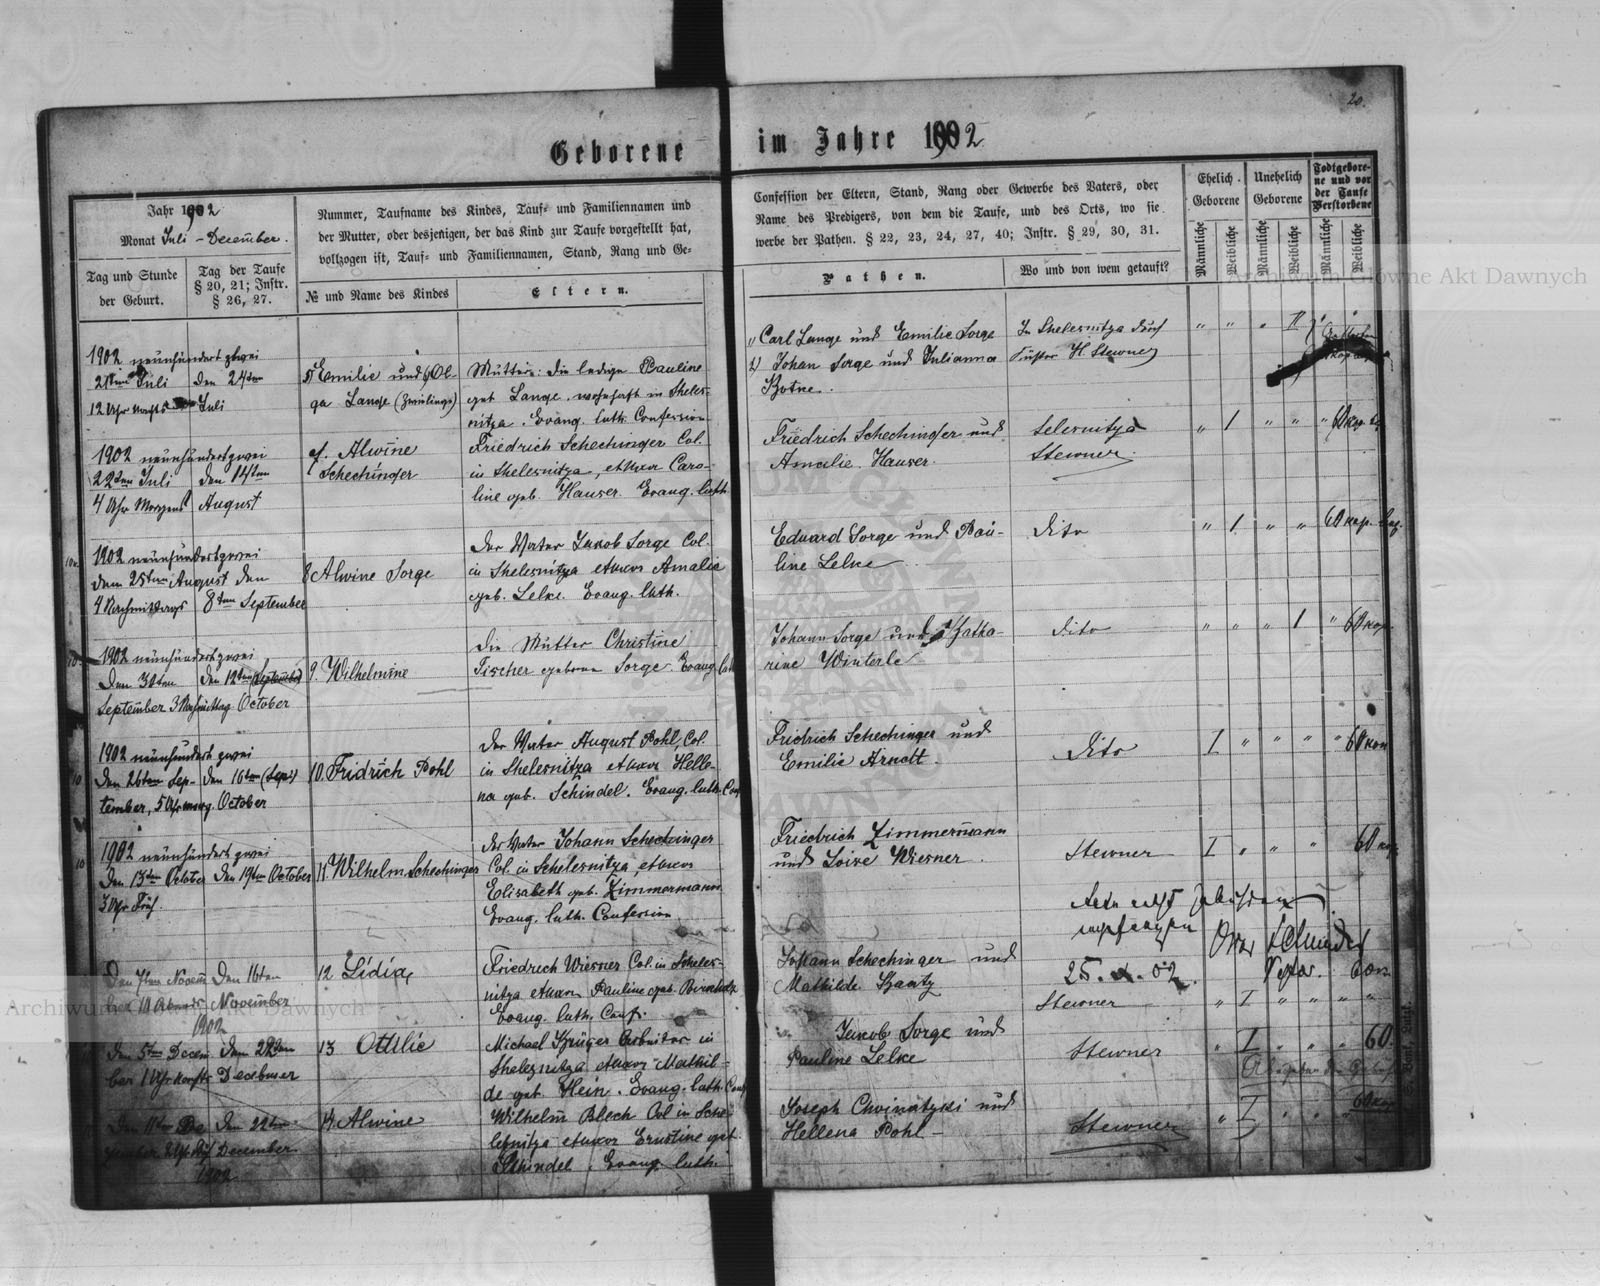 20.
Geborene im Jahre 1902
Jahr 1902
Monat Juli - December.
Tag und Stunde
der Geburt.
Tag der Taufe
§ 20, 21; Instr.
§ 26, 27.
Nummer, Taufname des Kindes, Tauf- und Familiennamen und
der Mutter, oder desjenigen, der das Kind zur Taufe vorgestellt hat,
vollzogen ist, Tauf- und Familiennamen, Stand, Rang und Ge-
№ und Name des Kindes
Eltern.
Confession der Eltern, Stand, Rang oder Gewerbe des Vaters, oder
Name des Predigers, von dem die Taufe, und des Orts, wo sie
werbe der Pathen. § 22, 23, 24, 27, 40; Instr. § 29, 30, 31.
Pathen.
Wo und von wem getauft?
Ehelich
Geborene
Unehelich
Geborene
Todtgebore-
ne und vor
der Taufe
Verstorbene
Männliche
Weibliche
Männliche
Weibliche
Männliche
Weibliche
1902 neunhundert zwei
Juli den 24ten
12 Uhr Nachts Juli
Emilie und Ol-
ga Lange (Zwillinge)
Mutter: die ledige Pauline
geb Lange. wohnhaft in Sheles-
nitza. Evang. luth. Confession
Carl Lange und Emilie Sorge
2) Johan Sorge und Julianna
In Shelesnitza durch
Küster H. Stewner
" " " II
1902 neunhundert zwei
22ten Juli den 14ten
4 Uhr Morgens August
Alwine
Schechinger
Friedrich Schechinger Col.
in Shelesnitza, et uxor Caro-
line geb. Hauser. Evang. luth
Friedrich Schechinger und
Amalie Hauser.
Selesnitza
Stewner.
" 1 " " " 60 kop.
1902 neunhundert zwei
dem 25ten August den
4 Nachmittags 8ten September
8 Alwine Sorge
Der Vater Jakob Sorge Col.
in Shelesnitza et uxor Amalie
geb. Lelke. Evang. luth.
Eduard Sorge und Pau-
line Lelke
dito
" 1 " " 60 kop.
1902 neunhundert zwei
Den 30ten den 12ten September
September 3 Nachmittag October
9. Wilhelmine
Die Mutter Christine
Fischer geborne Sorge. Evang. luth
Johann Sorge und Katha-
rine Winterle
dito
" " " 1 " 60 kop.
1902 neunhundert zwei
den 26ten Sep- den 16ten (Sep)
tember, 5 Uhr morg. October
10. Fridrich Pohl
Der Vater August Pohl, Col.
in Shelesnitza et uxor Helle-
na geb. Schindel. Evang. luth. Conf
Fridrich Schechinger und
Emilie Arndt.
dito
I " " " " 60 kop
1902 neunhundert zwei
Den 13ten October Den 19ten October
3 Uhr Früh.
11. Wilhelm Schechinger
der Vater Johann Schechinger
Col. in Schelesnitza, et uxor
Elisabeth geb. Zimmermann
Evang. luth. Confession
Friedrich Zimmermann
und Loise Wiesner.
Stewner
I " " " 60 kop
25. X. 02.
Den 7ten Novem Den 16ten
ber 10 Abends November
1902
12 Lidia
Friedrich Wiesner Col. in Scheles-
nitza et uxor Pauline geb.
Evang. luth. Conf.
Johann Schechinger und
Mathilde Kaatz
Stewner
" I " " " "
Den 5ten Decem Dem 22ten
ber 1 Uhr December
13 Ottilie
Michael Krüger Arbeiter in
Shelesnitza et uxor Mathil-
de geb. Hein. Evang. luth. Conf
Jacob Sorge und
Pauline Lelke
Stewner
" I " " " 60.
Den 11ten De Den 22ten
December
1902
14 Alwine
Wilhelm Blech Col in Sche-
lesnitza et uxor Ernstine geb
Schindel. Evang. luth.
Joseph Chwinatzki und
Hellena Pohl -
Stewner
" I " " 60 kop
Archiwum Główne Akt Dawnych
Archiwum Główne Akt Dawnych